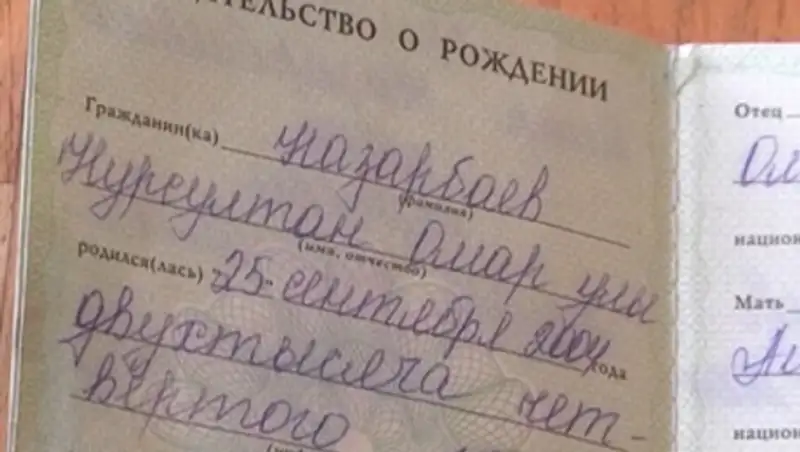 ТЕЛЬСТВО О РОЖДЕНИИ
Гражданин(ка) Назарбаев
(фамилия)
Нурсултан Омар улы
(имя, отчество)
родился(лась) 25 сентября 2004 года
двухтысяча чет-
вёртого
Отец
Ом
национ
Мать
национ